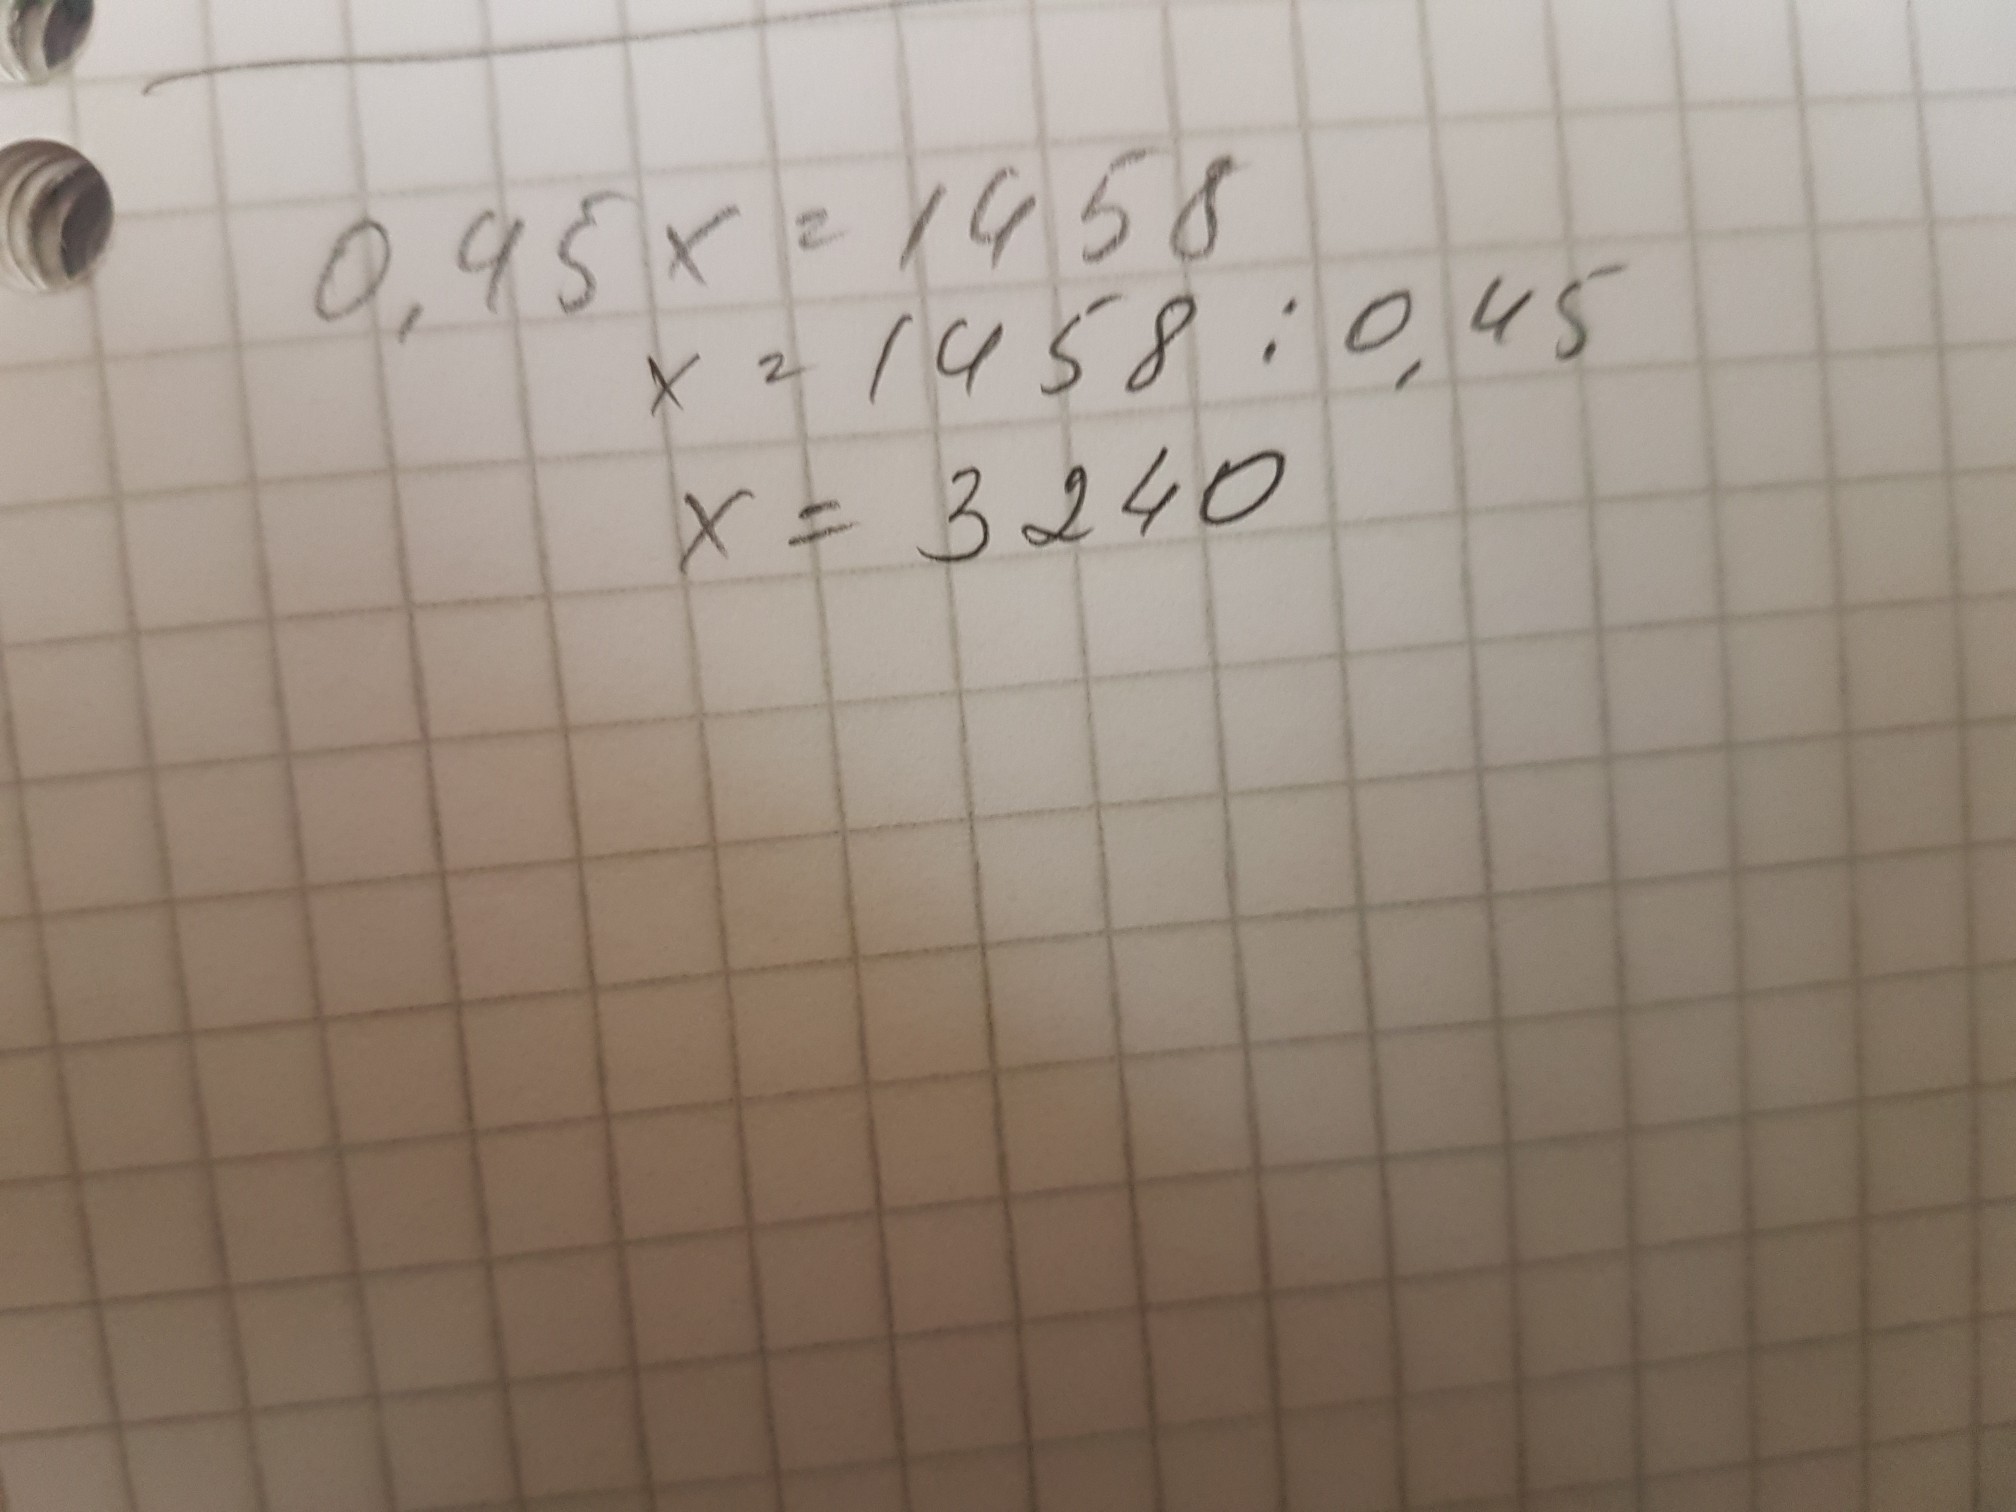 0,45x = 1458
x = 1458 : 0,45
x = 3240